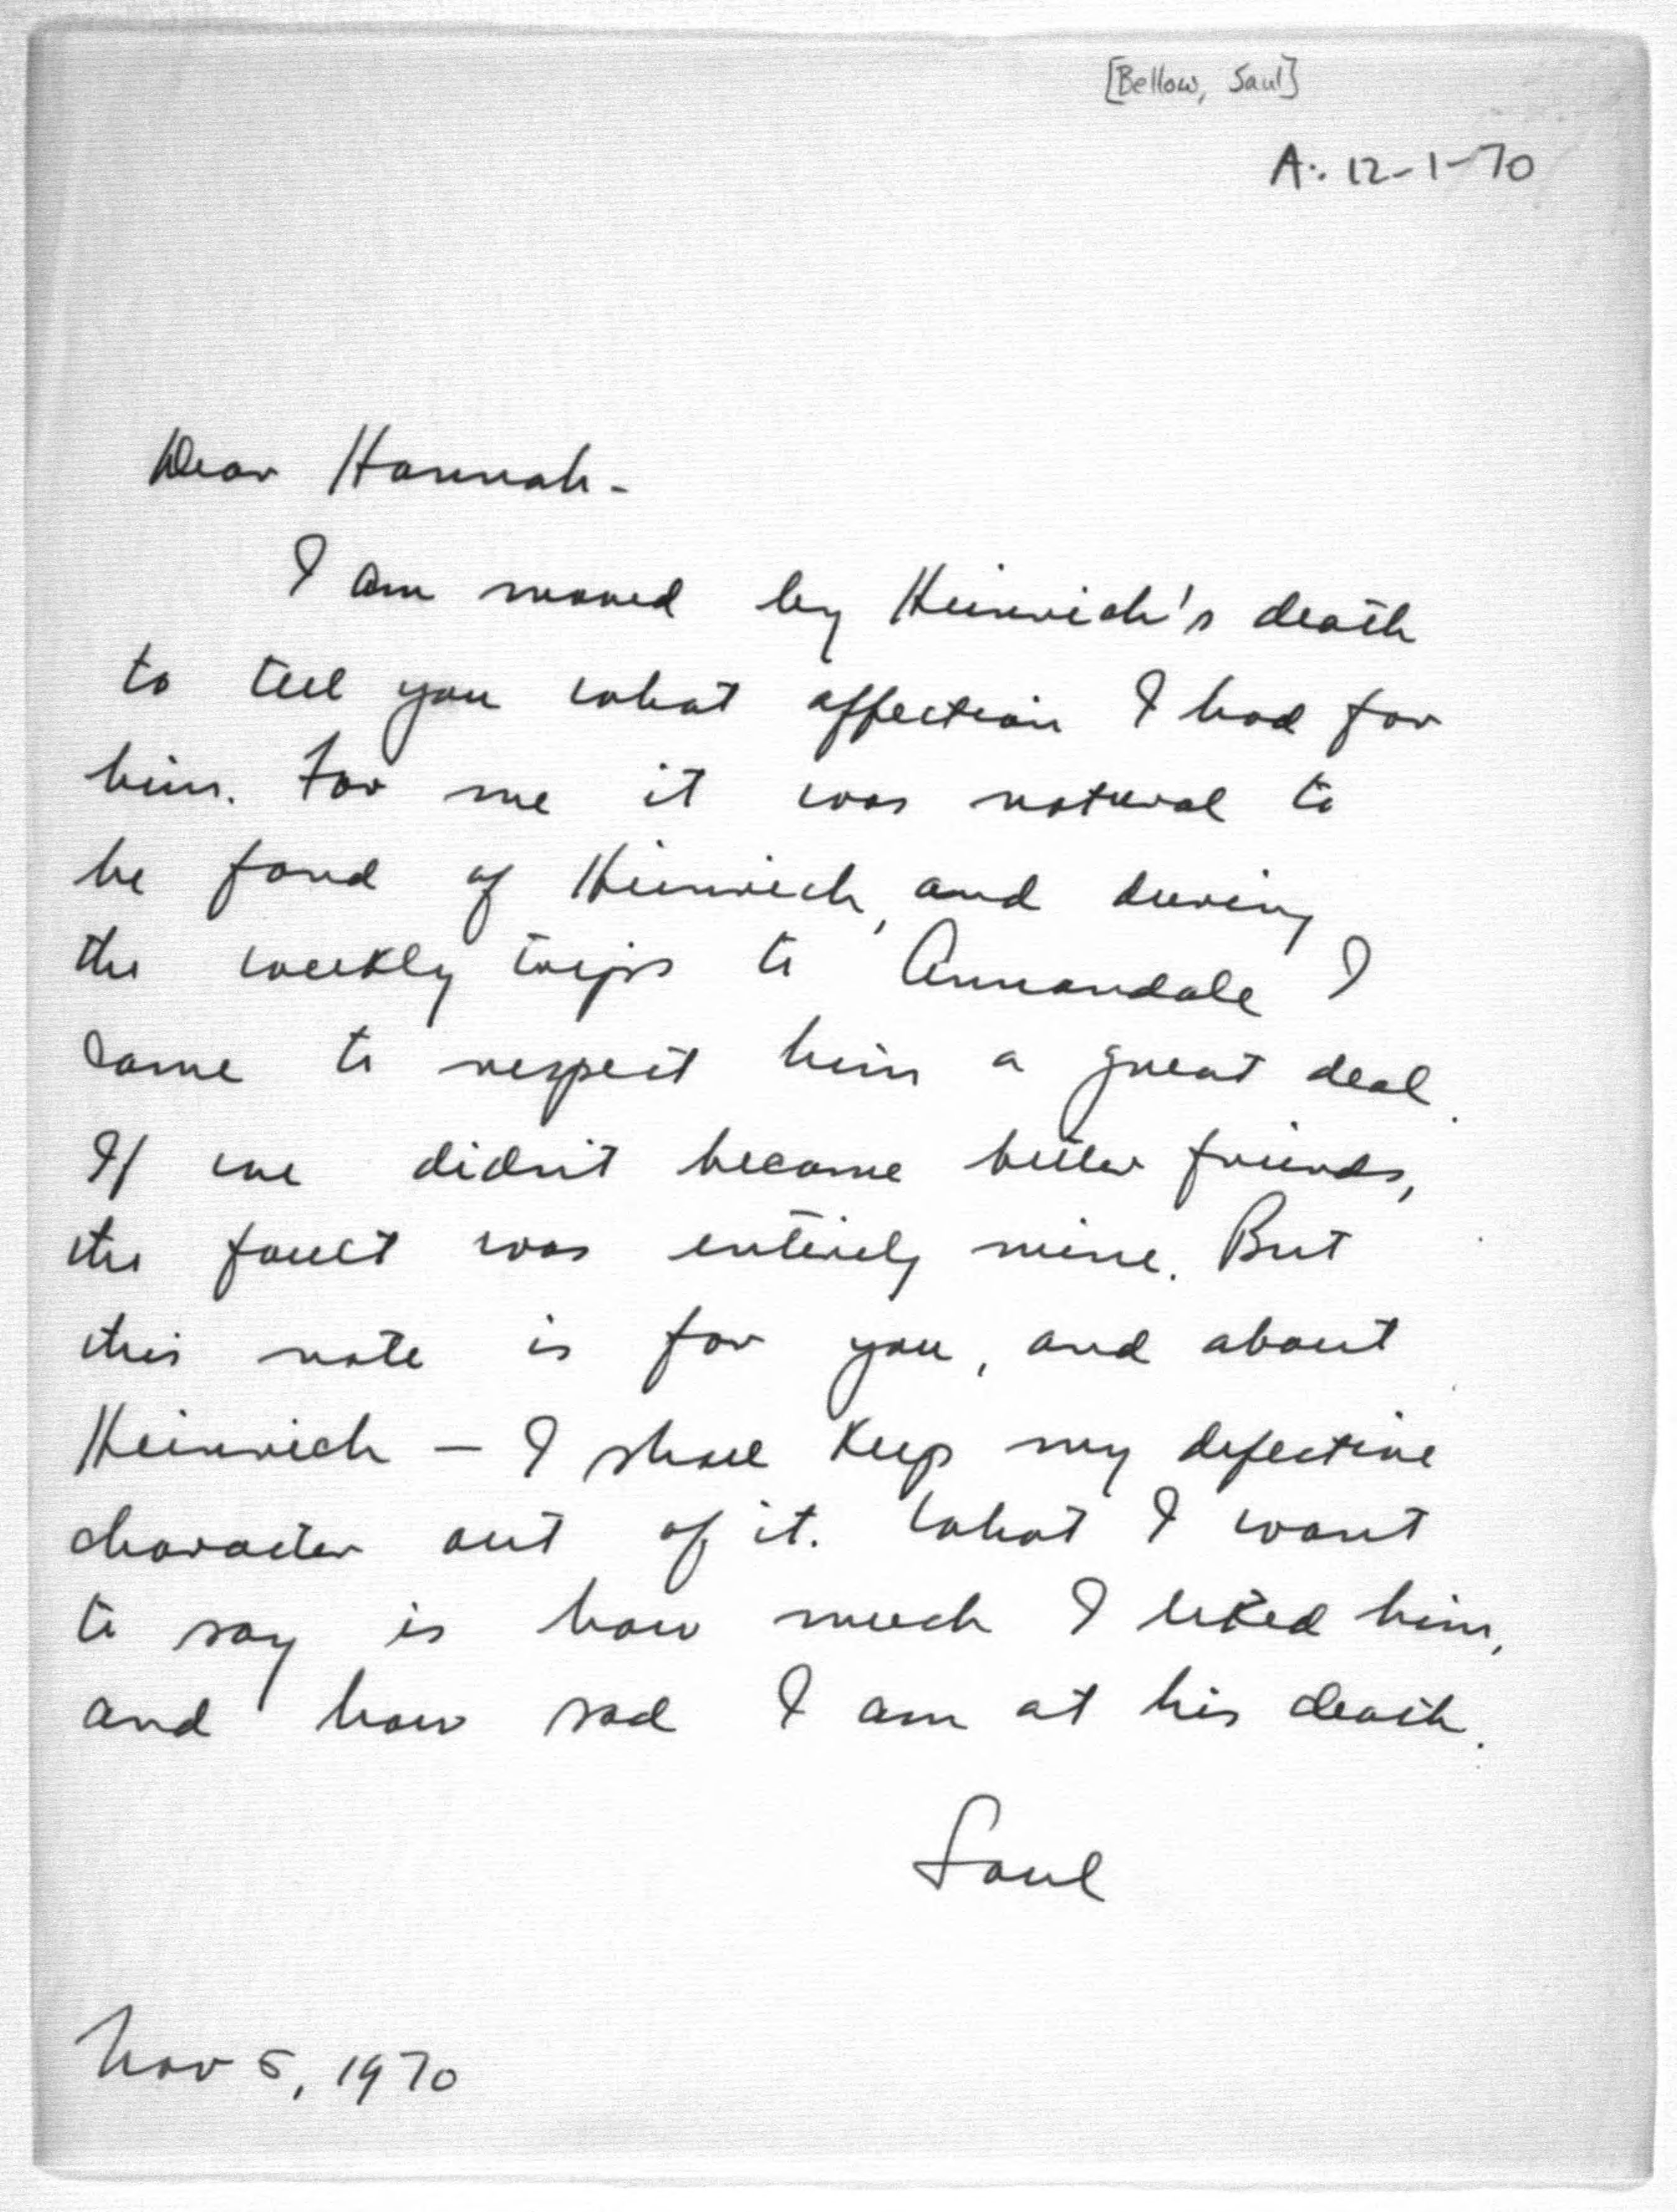 [Bellow, Saul]
A: 12-1-70
Dear Hannah-
I am moved by Heinrich's death
to tell you what affection I had for
him. For me it was natural to
be fond of Heinrich, and during
the weekly trips to Annandale I
came to respect him a great deal.
If we didn't become better friends,
the fault was entirely mine. But
this note is for you, and about
Heinrich — I shall keep my defective
character out of it. What I want
to say is how much I liked him,
and how sad I am at his death.
Saul
Nov 5, 1970